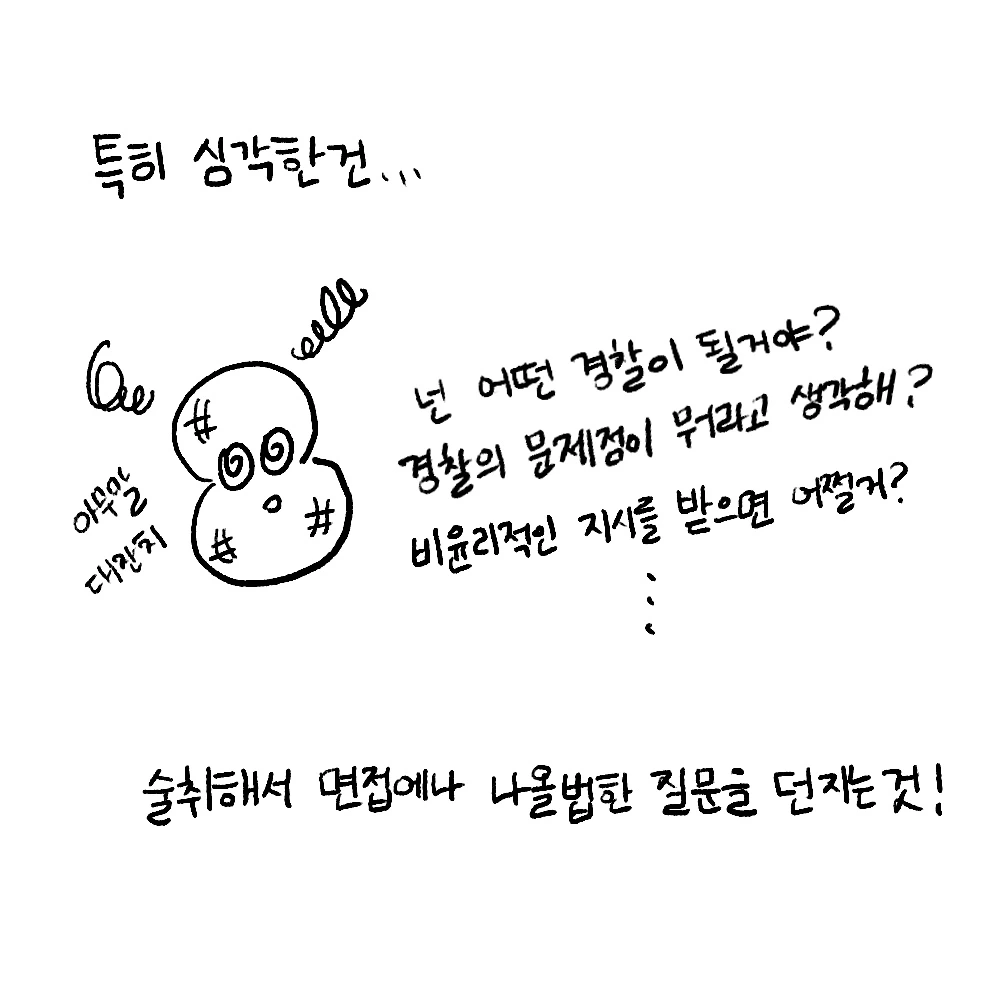 특히 심각한건...
넌 어떤 경찰이 될거야?
경찰의 문제점이 뭐라고 생각해?
비윤리적인 지시를 받으면 어쩔거?
아무말
대잔치
술취해서 면접에나 나올법한 질문을 던지는것!